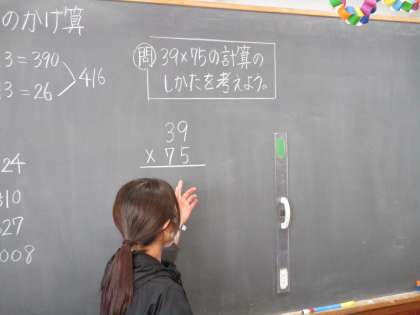 のかけ算
3=390
3=26
416
問 39×75の計算の
しかたを考えよう。
39
×75
24
310
327
008